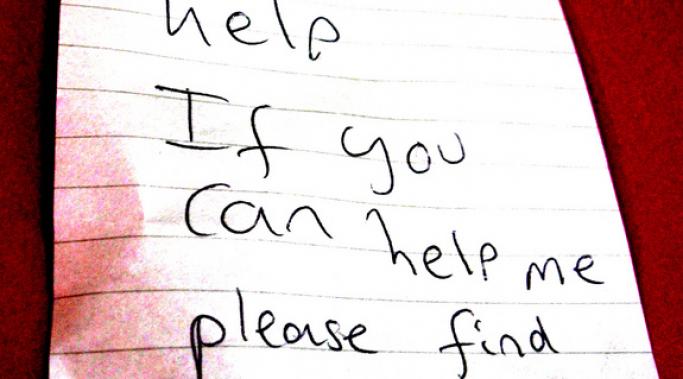 help
If you
can help me
please find